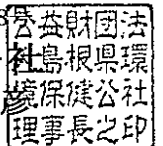 公益財団法
社島根県環
彦境保健公社
理事長之印